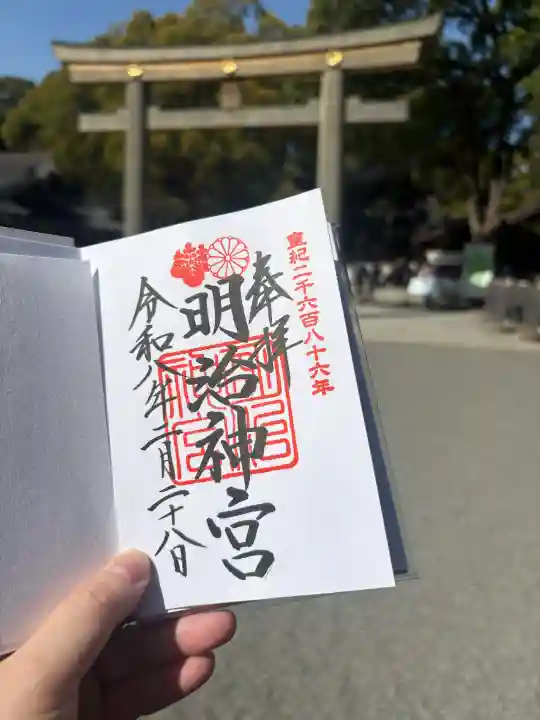 皇紀二千六百八十六年
奉拝
明治神宮
令和八年二月二十八日